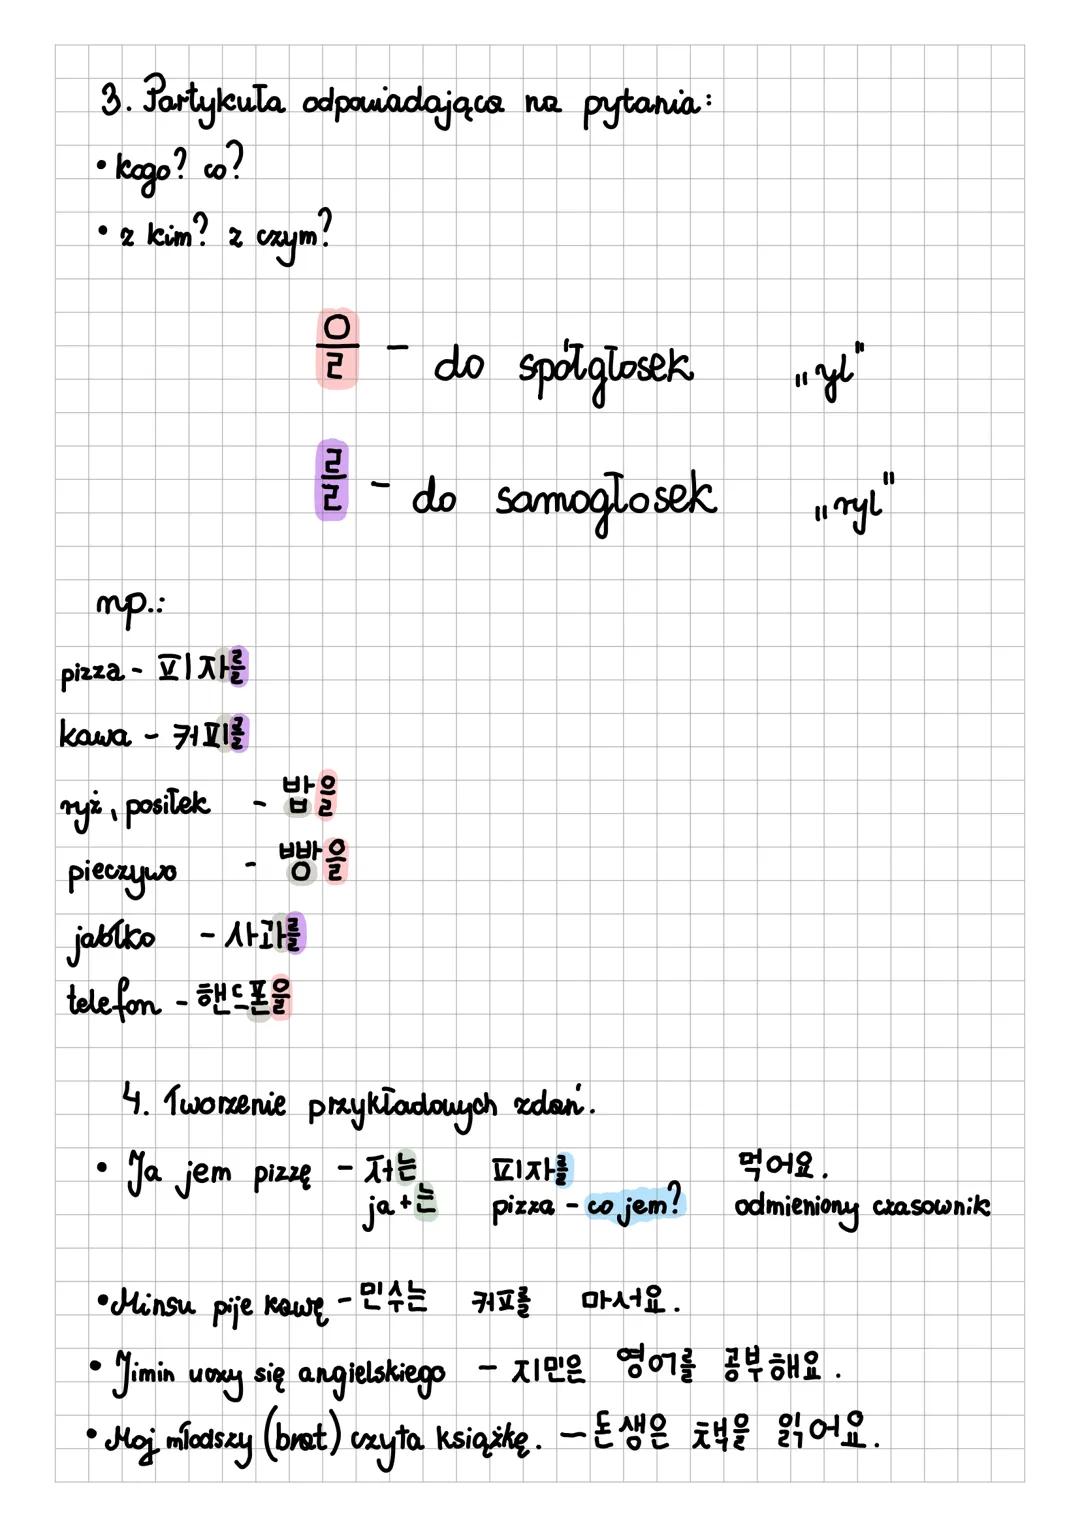 3. Partykuła odpowiadająca na pytania:
• kogo? co?
• z kim? z czym?
을 - do spółgłosek „yl"
를 - do samogłosek „ryl"
np.:
pizza - 피자를
kawa - 커피를
ryż, posiłek - 밥을
pieczywo - 빵을
jabłko - 사과를
telefon - 핸드폰을
4. Tworzenie przykładowych zdań.
• Ja jem pizzę - 저는 피자를 먹어요.
ja + 는 pizza - co jem? odmieniony czasownik
• Minsu pije kawę - 민수는 커피를 마서요.
• Jimin uczy się angielskiego - 지민은 영어를 공부해요.
• Moj młodszy (brat) czyta książkę. - 돈생은 책을 읽어요.